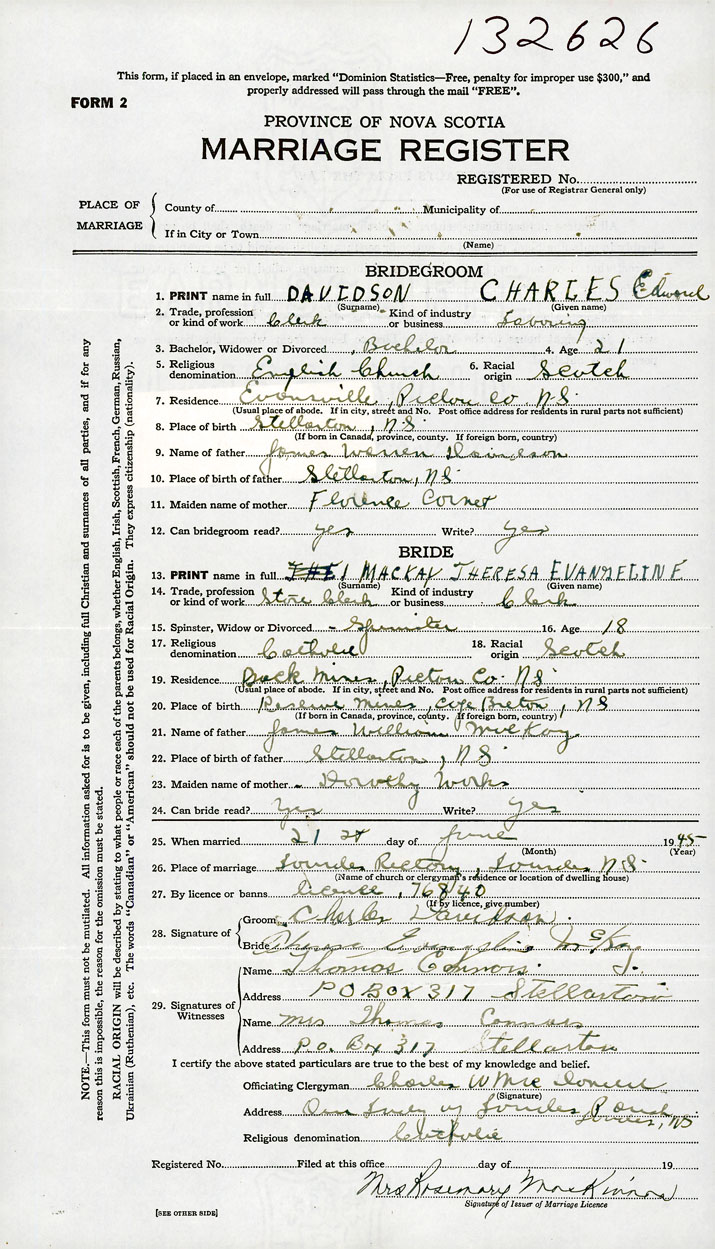 132626
This form, if placed in an envelope, marked "Dominion Statistics—Free, penalty for improper use $300," and
properly addressed will pass through the mail "FREE".
FORM 2
PROVINCE OF NOVA SCOTIA
MARRIAGE REGISTER
REGISTERED No.
(For use of Registrar General only)
PLACE OF MARRIAGE
County of Municipality of
If in City or Town
(Name)
BRIDEGROOM
1. PRINT name in full DAVIDSON CHARLES Edward
(Surname) (Given name)
2. Trade, profession or kind of work Clerk Kind of industry or business Laboring
3. Bachelor, Widower or Divorced Bachelor 4. Age 21
5. Religious denomination English Church 6. Racial origin Scotch
7. Residence Evansville, Pictou Co N.S.
(Usual place of abode. If in city, street and No. Post office address for residents in rural parts not sufficient)
8. Place of birth Stellarton, N.S.
(If born in Canada, province, county. If foreign born, country)
9. Name of father James Warren Davidson
10. Place of birth of father Stellarton, NS
11. Maiden name of mother Florence Corner
12. Can bridegroom read? yes Write? yes
BRIDE
13. PRINT name in full MACKAY THERESA EVANGELINE
(Surname) (Given name)
14. Trade, profession or kind of work Store Clerk Kind of industry or business Clerk
15. Spinster, Widow or Divorced - Spinster 16. Age 18
17. Religious denomination Catholic 18. Racial origin Scotch
19. Residence Mines, Pictou Co. NS
(Usual place of abode. If in city, street and No. Post office address for residents in rural parts not sufficient)
20. Place of birth Reserve Mines, Cape Breton, NS
(If born in Canada, province, county. If foreign born, country)
21. Name of father James William McKay
22. Place of birth of father Stellarton, NS
23. Maiden name of mother - Dorothy Works
24. Can bride read? Yes Write? yes
25. When married 21 st day of June 1945
(Month) (Year)
26. Place of marriage Lourdes Rectory, Lourdes N.S.
(Name of church or clergyman's residence or location of dwelling house)
27. By licence or banns licence, 76840
(If by licence, give number)
28. Signature of
Groom Charles Davidson
Bride Theresa Evangeline McKay
29. Signatures of Witnesses
Name Thomas Connors J.
Address P O BOX 317 Stellarton
Name Mrs Thomas Connors
Address P.O. Box 317 Stellarton
I certify the above stated particulars are true to the best of my knowledge and belief.
Officiating Clergyman Charles W
(Signature)
Address Our Lady of Lourdes Lourdes, NS
Religious denomination Catholic
Registered No. Filed at this office day of 19
Mrs Rosemary MacKinnon
Signature of Issuer of Marriage Licence
[SEE OTHER SIDE]
NOTE.—This form must not be mutilated. All information asked for is to be given, including full Christian and surnames of all parties, and if for any
reason this is impossible, the reason for the omission must be stated.
RACIAL ORIGIN will be described by stating to what people or race each of the parents belongs, whether English, Irish, Scottish, French, German, Russian,
Ukrainian (Ruthenian), etc. The words "Canadian" or "American" should not be used for Racial Origin. They express citizenship (nationality).